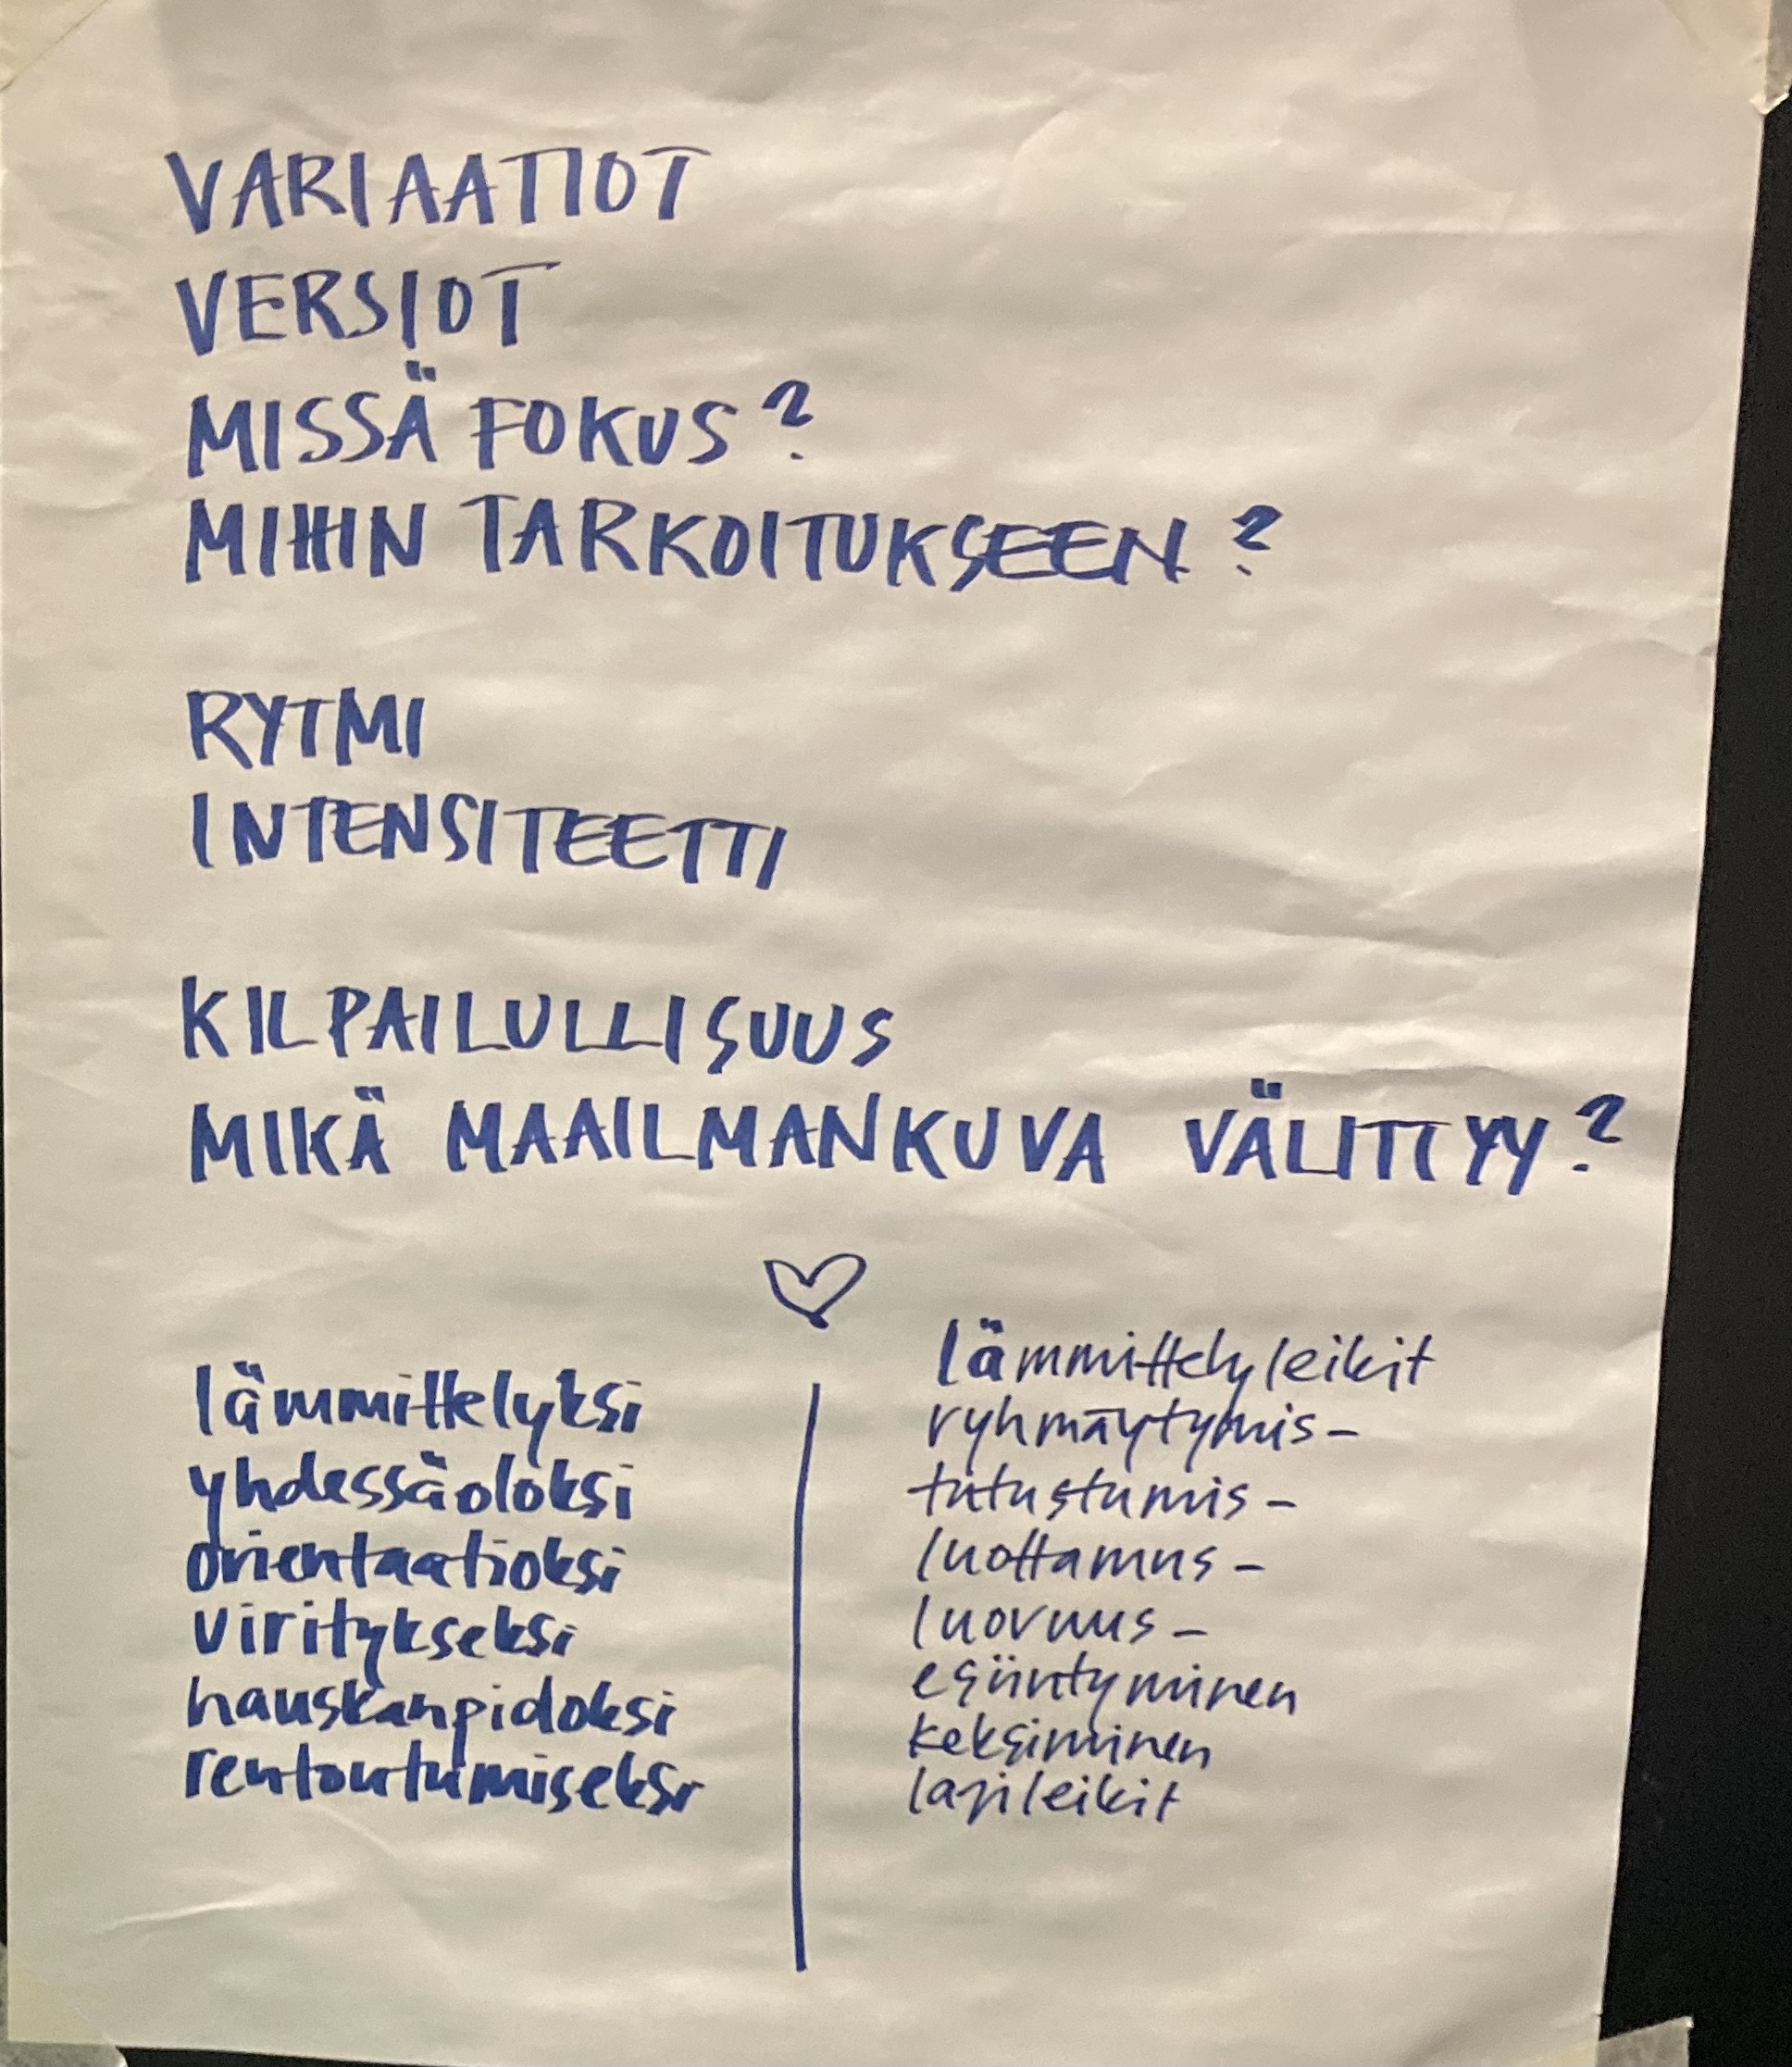 VARIAATIOT
VERSIOT
MISSÄ FOKUS?
MIHIN TARKOITUKSEEN?
RYTMI
INTENSITEETTI
KILPAILULLISUUS
MIKÄ MAAILMANKUVA VÄLITTYY?
lämmittelyksi
yhdessäoloksi
orientaatioksi
viritykseksi
hauskanpidoksi
rentoutumiseksi
lämmittelyleikit
ryhmäytymis-
tutustumis-
luottamus-
luovuus-
esiintyminen
keksiminen
lajileikit